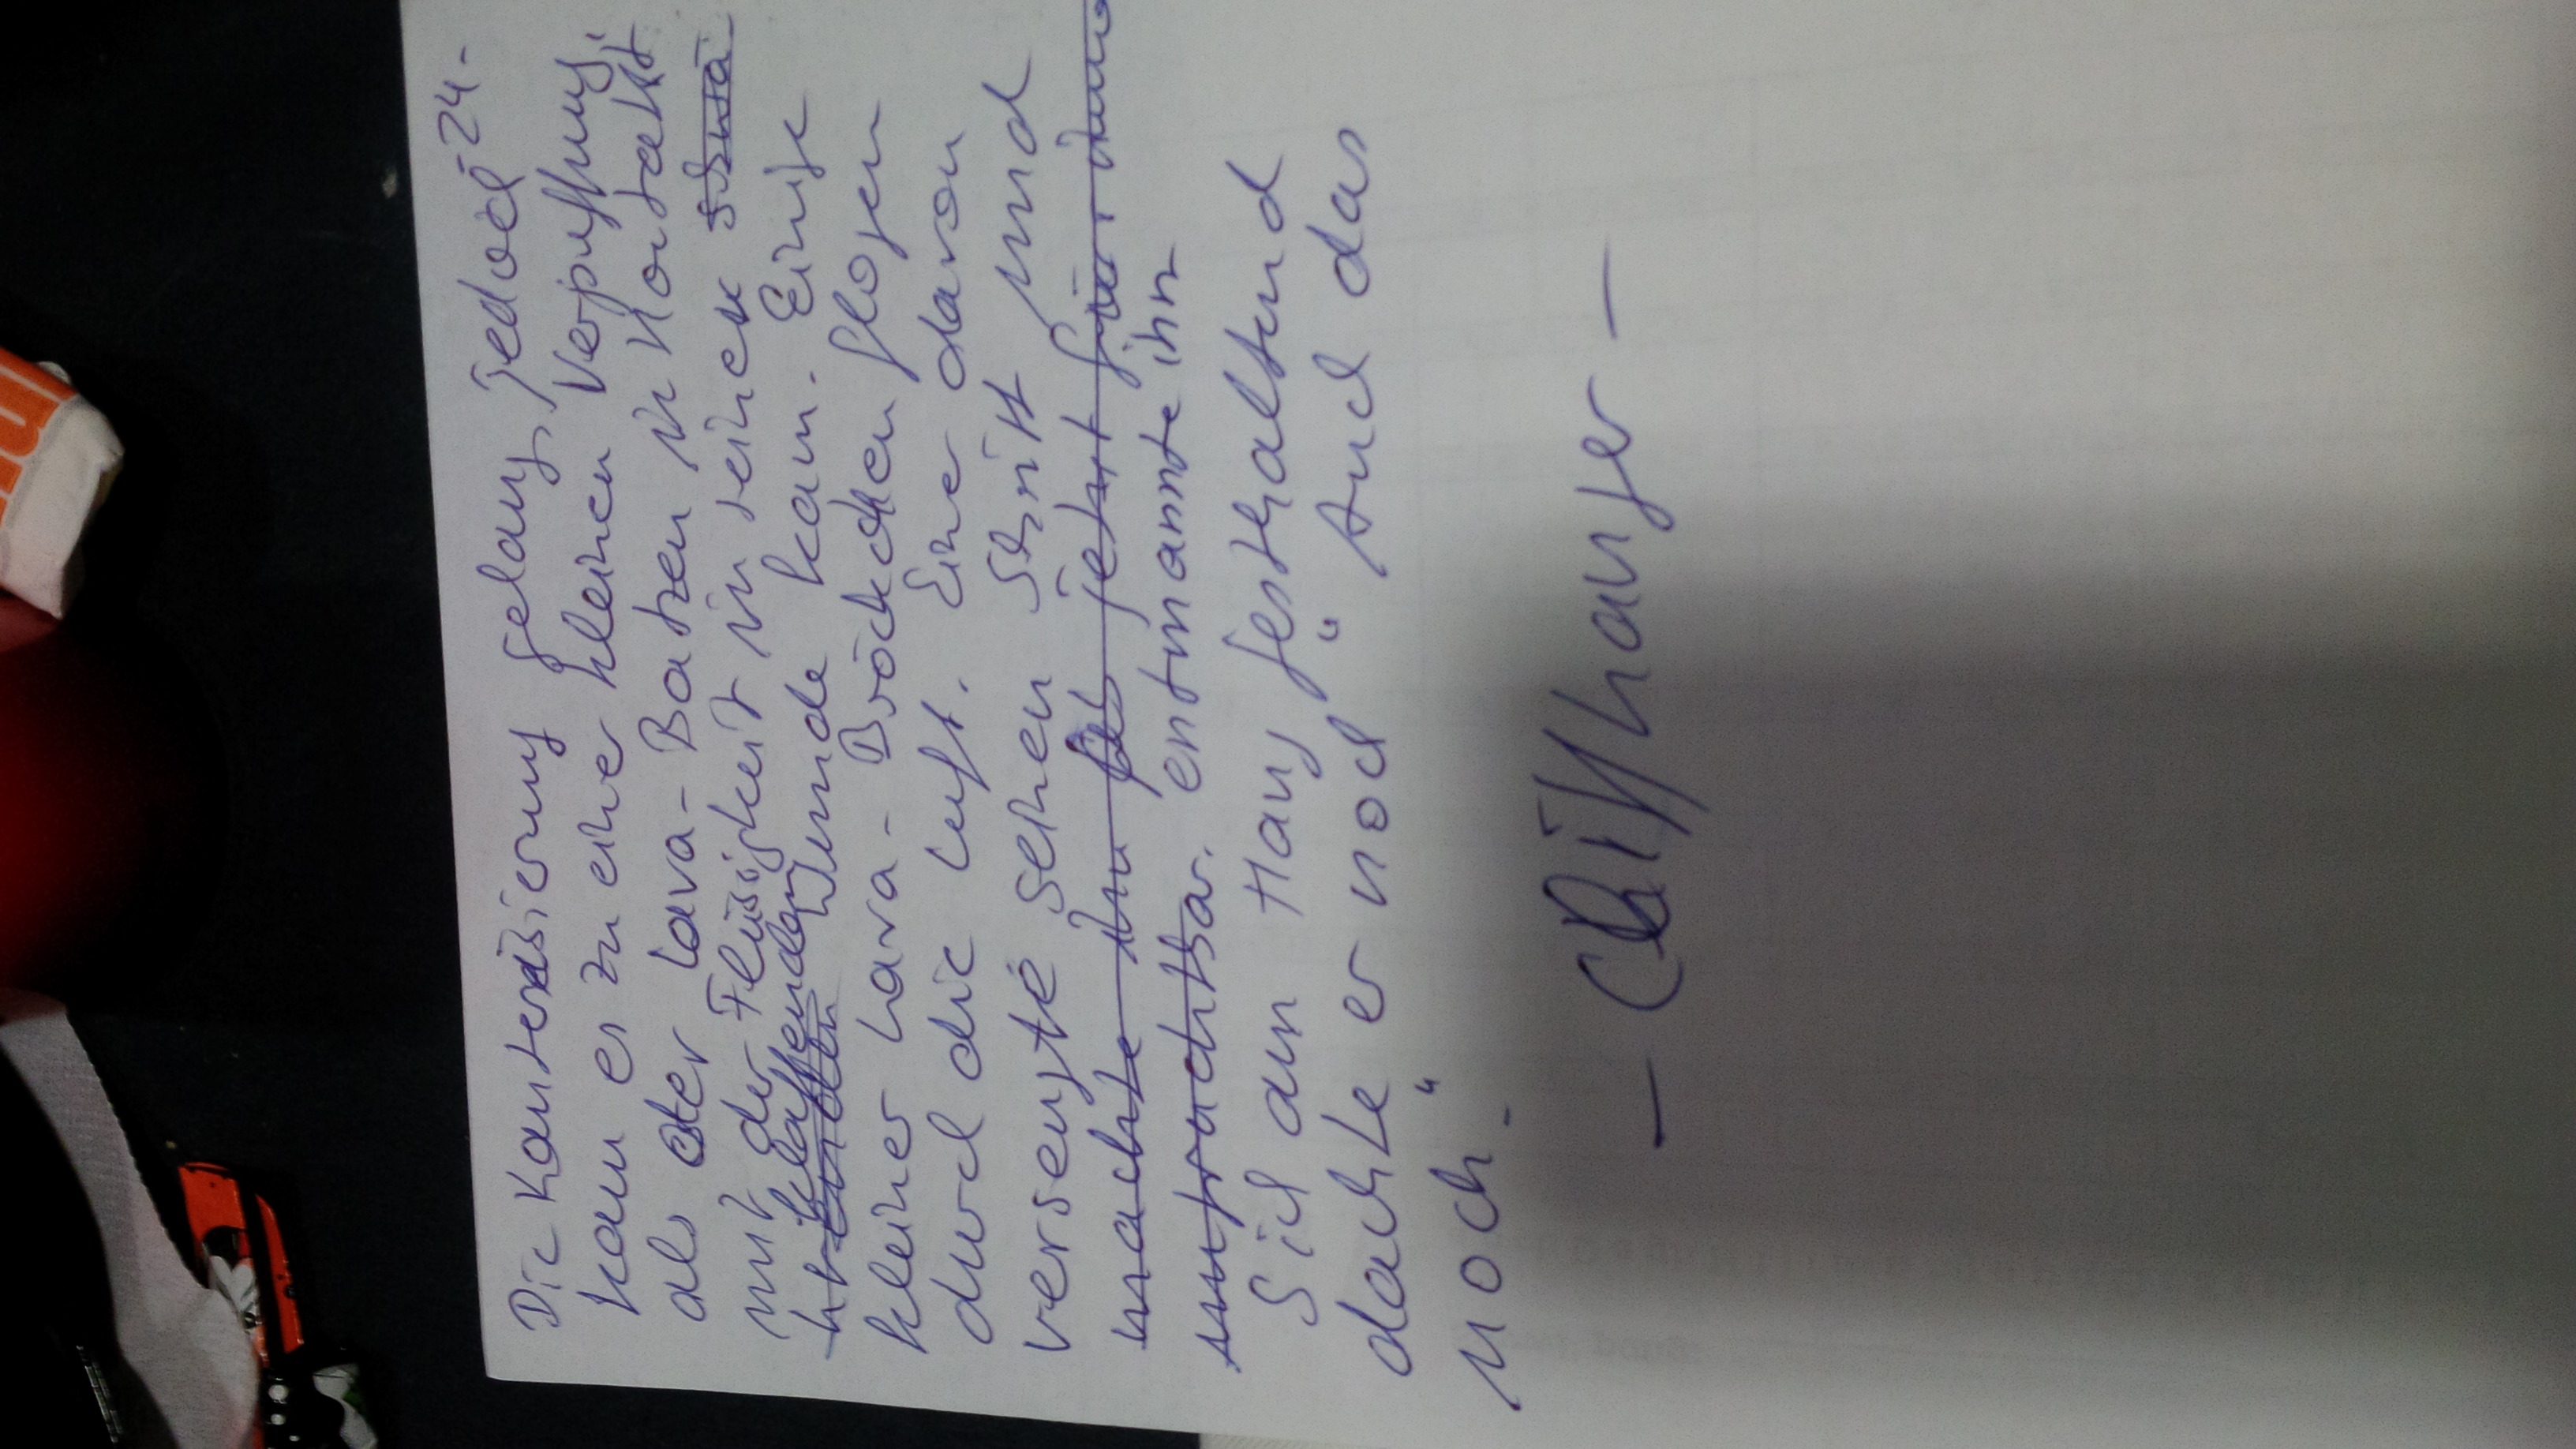 -24-
Die Kauterisierung gelang, jedoch
kam es zu einer kleinen Verpuffung,
als der Lava-Batzen in Kontakt
mit der Flüssigkeit in seiner
klaffenden Wunde kam. Einige
kleiner Lava-Bröckchen flogen
durch die Luft. Einer davon
versengte seinen Schritt und
machte ihn jetzt für immer
unfruchtbar. entmannte ihn
Sich am Hang festhaltend
dachte er noch "Auch das
noch"-
- Cliffhanger -